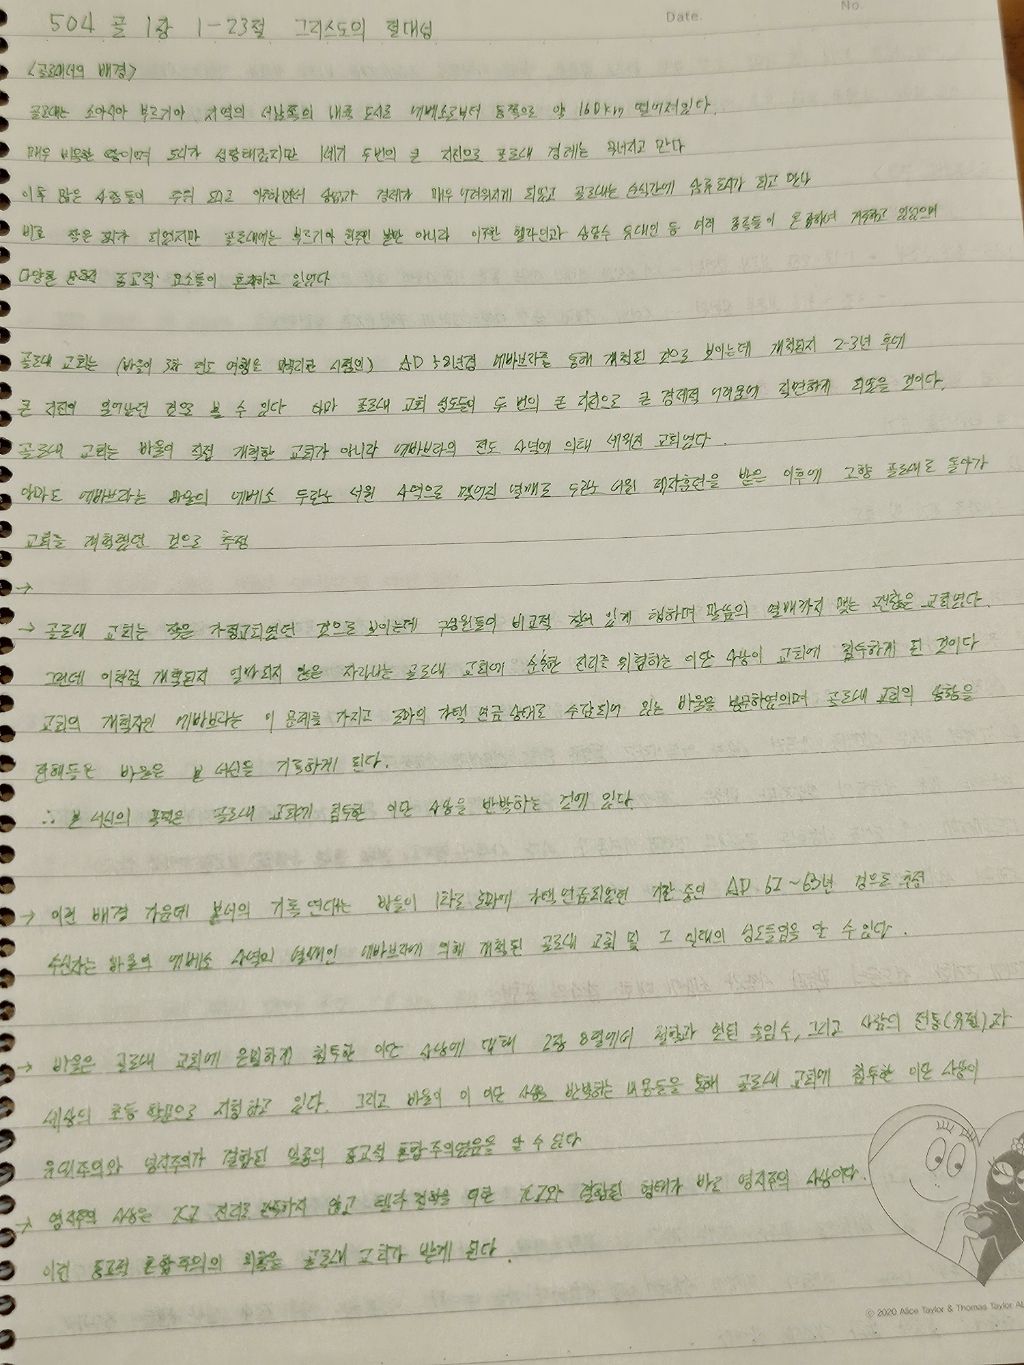 Date.
No.
504 골 1장 1-23절 그리스도의 절대성
<골로새서의 배경>
골로새는 소아시아 부르기아 지역의 서남쪽의 내륙 도시로 에베소로부터 동쪽으로 약 160km 떨어져있다.
매우 비옥한 땅이며 도시가 성황해졌지만 1세기 두번의 큰 지진으로 골로새 경제는 무너지고 만다
이후 많은 사람들이 주위 도시로 이주하면서 상업과 경제가 매우 어려워지게 되었고 골로새는 순식간에 소도시가 되고 만다
비록 작은 도시가 되었지만 골로새에는 부르기아 원주민 뿐만 아니라 이주한 헬라인과 상당수 유대인 등 여러 종족들이 혼합하여 거주하고 있었으며
다양한 문화적 종교적 요소들이 혼재하고 있었다
골로새 교회는 (바울이 3차 전도 여행을 마무리한 시점인) AD 58년경 에바브라를 통해 개척된 것으로 보이는데 개척되지 2-3년 후에
큰 지진이 일어났던 것으로 볼 수 있다 아마 골로새 교회 성도들이 두 번의 큰 지진으로 큰 경제적 어려움에 직면하게 되었을 것이다.
골로새 교회는 바울이 직접 개척한 교회가 아니라 에바브라의 전도 사역에 의해 세워진 교회였다.
아마도 에바브라는 바울의 에베소 두란노 서원 사역으로 맺어진 열매로 두란노 서원 제자훈련을 받은 이후에 고향 골로새로 돌아가
교회를 개척했던 것으로 추정
→
→ 골로새 교회는 작은 가정교회였던 것으로 보이는데 구성원들이 비교적 질서 있게 행하며 말씀의 열매까지 맺는 괜찮은 교회였다.
그런데 이처럼 개척된지 얼마되지 않은 자라나는 골로새 교회에 순수한 진리를 위협하는 이단 사상이 교회에 침투하게 된 것이다
교회의 개척자인 에바브라는 이 문제를 가지고 로마의 가택 연금 상태로 수감되어 있는 바울을 방문하였으며 골로새 교회의 상황을
전해들은 바울은 본 서신을 기록하게 된다.
∴ 본 서신의 목적은 골로새 교회에 침투한 이단 사상을 반박하는 것에 있다
→ 이런 배경 가운데 본서의 기록 연대는 바울이 1차로 로마에 가택연금되었던 기간 중인 AD 62~63년 경으로 추정
수신자는 바울의 에베소 사역의 열매인 에바브라에 의해 개척된 골로새 교회 및 그 일대의 성도들임을 알 수 있다.
→ 바울은 골로새 교회에 은밀하게 침투한 이단 사상에 대해 2장 8절에서 철학과 헛된 속임수, 그리고 사람의 전통(유전)과
세상의 초등 학문으로 지칭하고 있다. 그리고 바울이 이 이단 사상을 반박하는 내용들을 통해 골로새 교회에 침투한 이단 사상이
유대주의와 영지주의가 결합된 일종의 종교적 혼합주의였음을 알 수 있다
→ 영지주의 사상은 진리로 만족하지 않고 헬라 철학을 결합된 형태가 바로 영지주의 사상이다.
이런 종교적 혼합주의의 위협을 골로새 교회가 받게 된다.
© 2020 Alice Taylor & Thomas Taylor